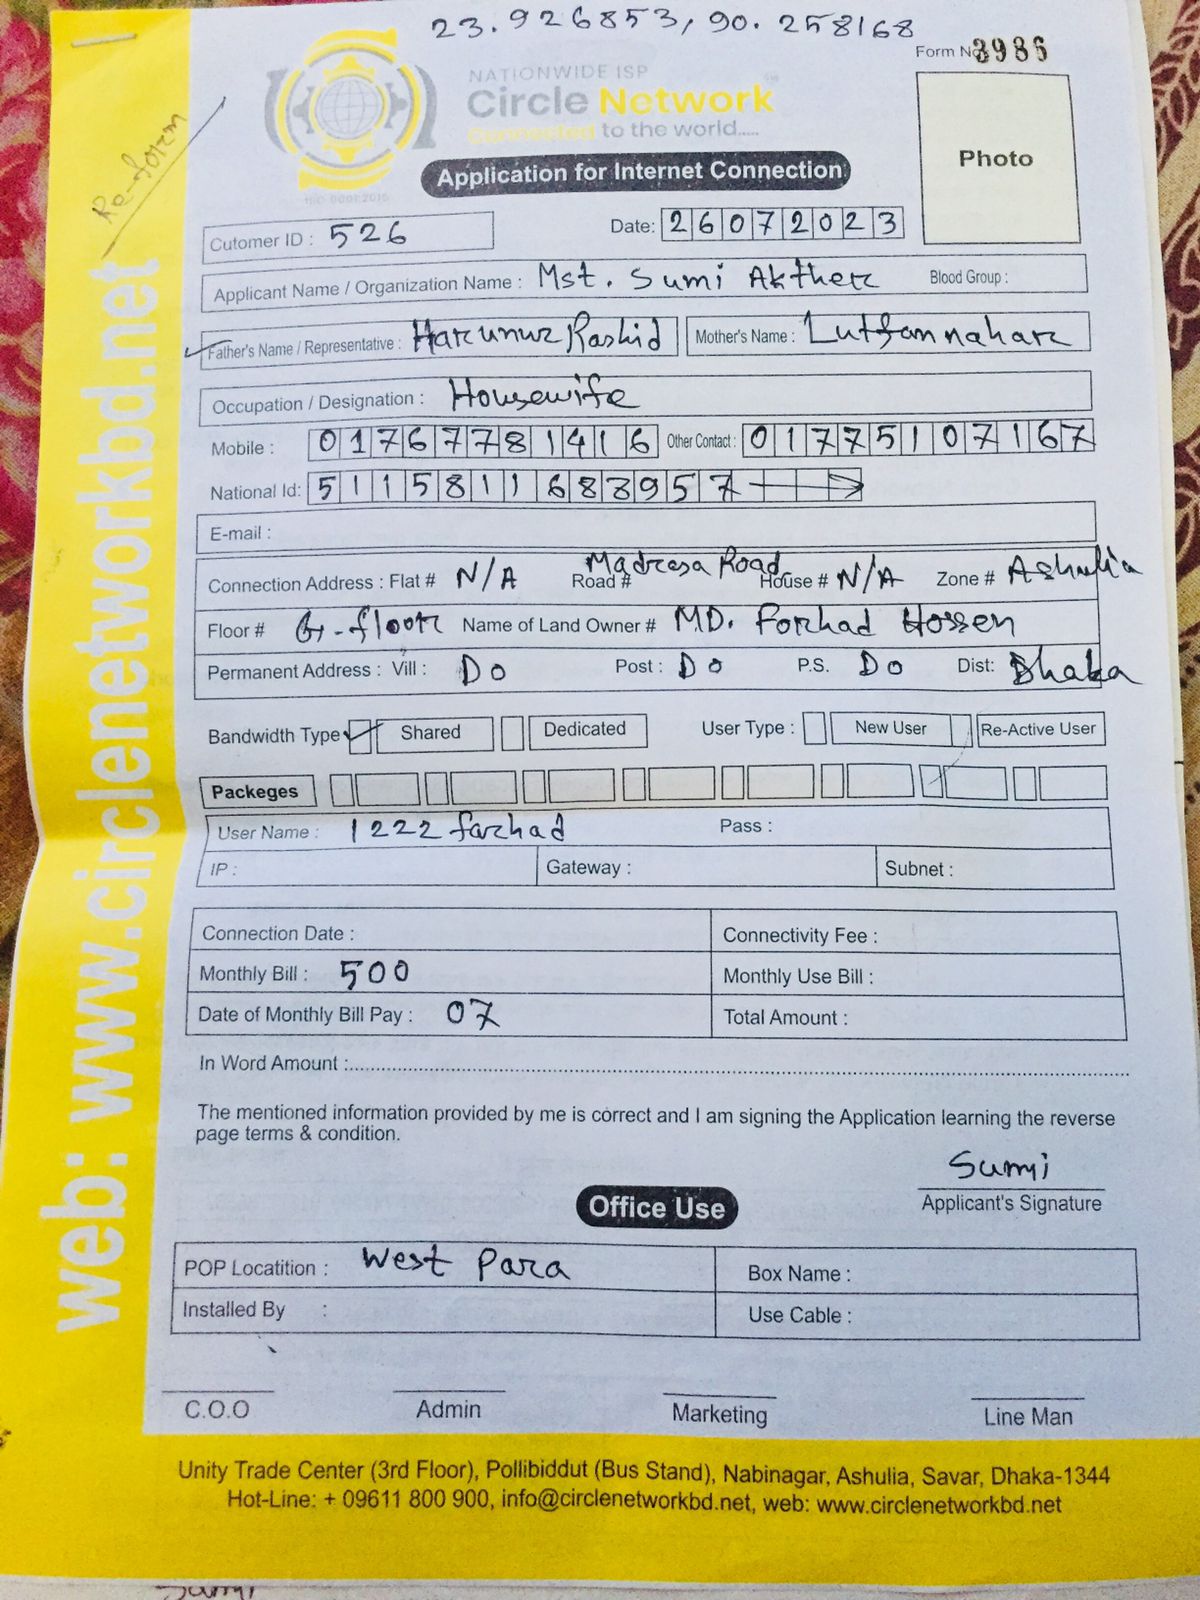 23.926853, 90.258168
Form No 3986
NATIONWIDE ISP
Circle Network
Connected to the world.....
ISO 9001:2015
Photo
Application for Internet Connection
Re-form
Cutomer ID : 526
Date: 26072023
Applicant Name / Organization Name : Mst. Sumi Akther Blood Group :
Father's Name / Representative : Harunur Rashid Mother's Name : Lutfannahar
Occupation / Designation : Housewife
Mobile : 01767781416 Other Contact : 01775107167
National Id: 5115811683957
E-mail :
Connection Address : Flat # N/A Road # Madrasa Road House # N/A Zone # Ashulia
Floor # G-floor Name of Land Owner # MD. Forhad Hossen
Permanent Address : Vill : Do Post : Do P.S. Do Dist: Dhaka
Bandwidth Type Shared Dedicated User Type : New User Re-Active User
Packeges
User Name : 1222 farhad Pass :
IP : Gateway : Subnet :
Connection Date : Connectivity Fee :
Monthly Bill : 500 Monthly Use Bill :
Date of Monthly Bill Pay : 07 Total Amount :
In Word Amount :
The mentioned information provided by me is correct and I am signing the Application learning the reverse
page terms & condition.
Sumi
Applicant's Signature
Office Use
POP Locatition : West Para Box Name :
Installed By : Use Cable :
C.O.O Admin Marketing Line Man
Unity Trade Center (3rd Floor), Pollibiddut (Bus Stand), Nabinagar, Ashulia, Savar, Dhaka-1344
Hot-Line: + 09611 800 900, info@circlenetworkbd.net, web: www.circlenetworkbd.net
web: www.circlenetworkbd.net
Sumi